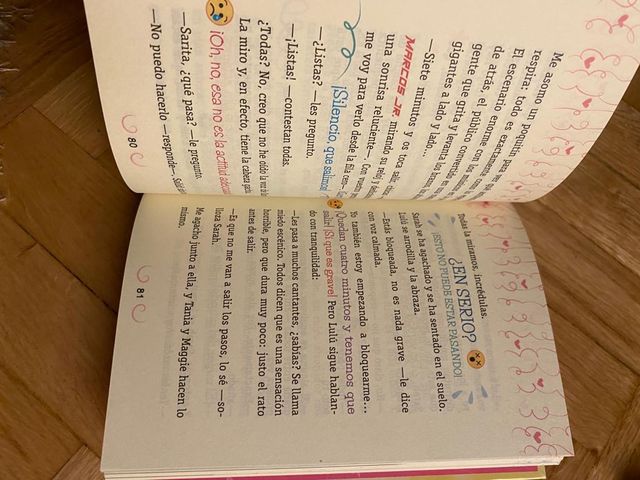 Me asomo un poquitín para ver qué
respira: todo es exactamente
El escenario, enorme
de atrás, el público con los
gente que grita y
gigantes a lado y lado...
—Siete minutos y os toca salir
MARCOS JR. mirando su reloj y
una sonrisa reluciente—. Con
me voy para verlo desde la fila cero
¡Silencio, que salimos!
—¿Listas? —les pregunto.
—¡Listas! —contestan todas.
¿Todas? No, creo que no he oído la voz de
La miro y, en efecto, tiene la cabeza
¡Oh, no, esa no es la actitud
—Sarita, ¿qué pasa? —le pregunto.
—No puedo hacerlo —responde—.
80
Todas la miramos, incrédulas.
¿EN SERIO?
¡ESTO NO PUEDE ESTAR PASANDO!
Sarah se ha agachado y se ha sentado en el suelo.
Lulú se arrodilla y la abraza.
—Estás bloqueada, no es nada grave —le dice
con voz calmada.
Yo también estoy empezando a bloquearme...
¡Quedan cuatro minutos y tenemos que
salir! ¡Sí que es grave! Pero Lulú sigue hablan-
do con tranquilidad:
—Les pasa a muchos cantantes, ¿sabías? Se llama
miedo escénico. Todos dicen que es una sensación
horrible, pero que dura muy poco: justo el rato
antes de salir.
—Es que no me van a salir los pasos, lo sé —so-
lloza Sarah.
Me agacho junto a ella, y Tania y Maggie hacen lo
mismo.
81